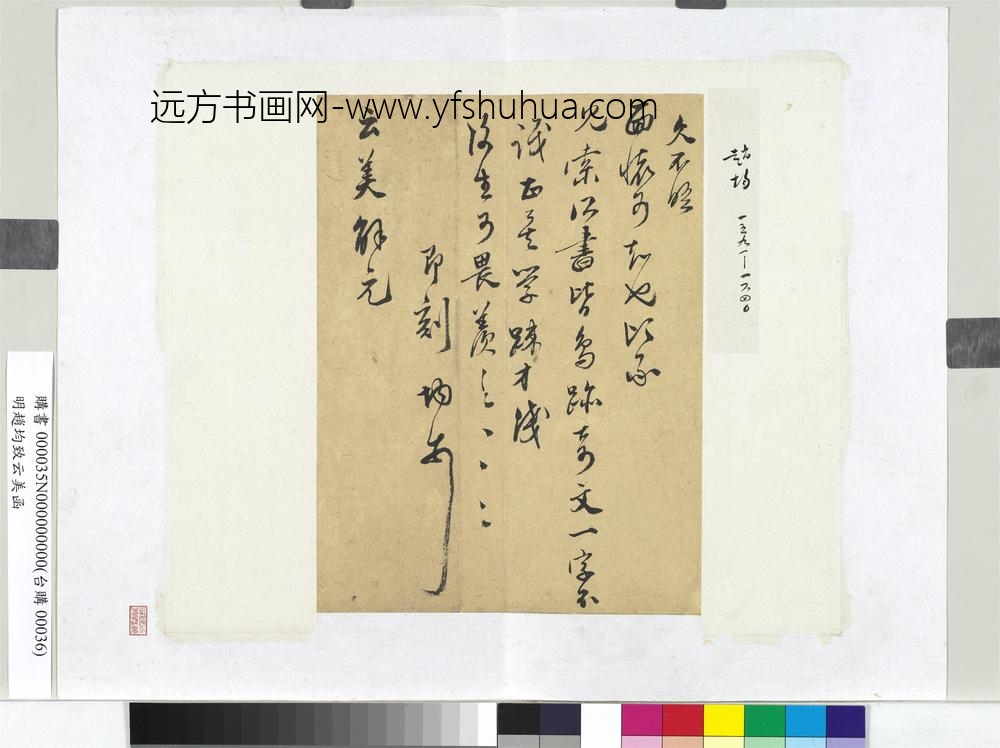 远方书画网-www.yfshuhua.com
趙均 一五九一-一六四〇
久不晤
面懷可知也比承
兄索以書皆鳥跡奇文一字不
識正是學疎才淺
後生可畏羨之〻〻〻
即刻 均
云美解元
購書 000035N000000000(台購 00036)
明趙均致云美函